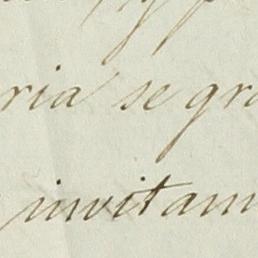 ria se gra
invitam